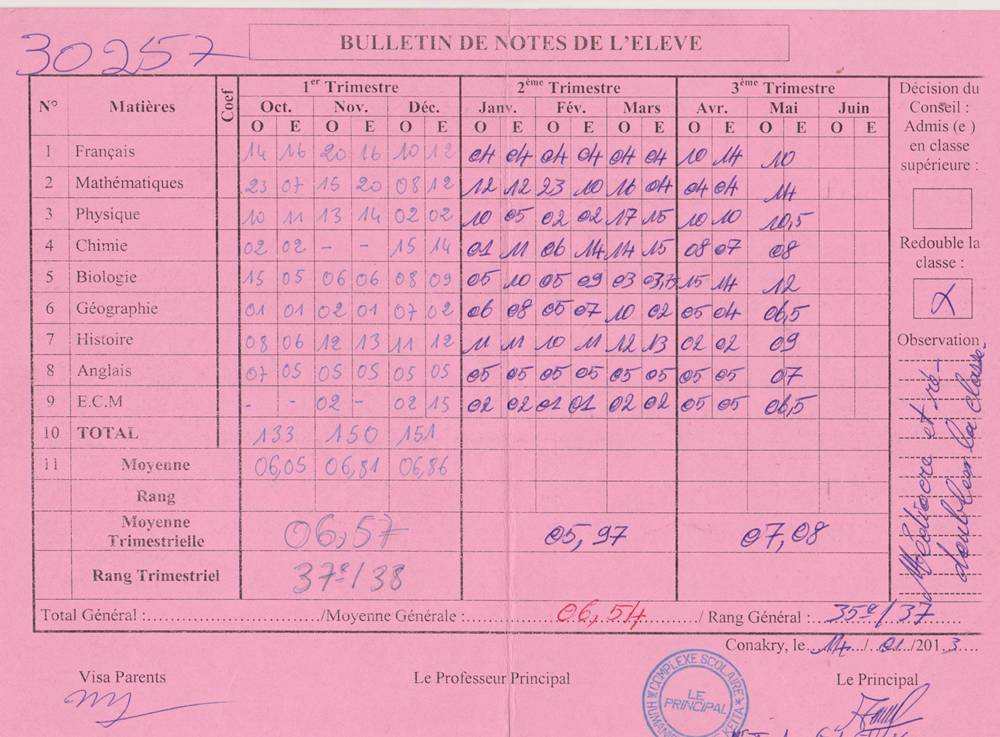 30257
BULLETIN DE NOTES DE L'ELEVE
N° Matières Coef 1er Trimestre 2ème Trimestre 3ème Trimestre
Oct. Nov. Déc. Janv. Fév. Mars Avr. Mai Juin
O E O E O E O E O E O E O E O E O E
1 Français 14 16 20 16 10 12 04 04 04 04 04 04 10 14 10
2 Mathématiques 23 07 15 20 08 12 12 12 23 10 16 04 04 04 14
3 Physique 10 11 13 14 02 02 10 05 02 02 17 15 10 10 10,5
4 Chimie 02 02 - - 15 14 01 11 06 14 14 15 08 07 08
5 Biologie 15 05 06 06 08 09 05 10 05 09 03 03,75 15 14 12
6 Géographie 01 01 02 01 07 02 06 08 05 07 10 02 05 04 06,5
7 Histoire 08 06 12 13 11 12 11 11 10 11 12 13 02 02 09
8 Anglais 07 05 05 05 05 05 05 05 05 05 05 05 05 05 07
9 E.C.M - - 02 - 02 15 02 02 01 01 02 02 05 05 06,5
10 TOTAL 133 150 151
11 Moyenne 06,05 06,81 06,86
Rang
Moyenne
Trimestrielle 06,57 05,97 07,08
Rang Trimestriel 37e/38
Décision du
Conseil :
Admis (e )
en classe
supérieure :
Redouble la
classe :
X
Observation
Médiocre et re-
doubler la classe.
Total Général :................................/Moyenne Générale : 06,54 / Rang Général : 35e/37
Conakry, le 14/01/2013
Visa Parents Le Professeur Principal Le Principal
COMPLEXE SCOLAIRE
LE
PRINCIPAL
KEITA